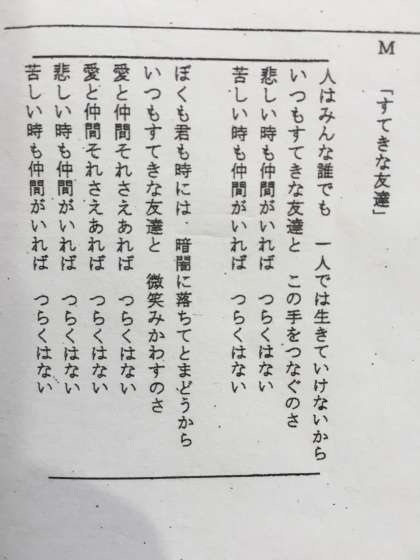 M
「すてきな友達」
人はみんな誰でも　一人では生きていけないから
いつもすてきな友達と　この手をつなぐのさ
悲しい時も仲間がいれば　つらくはない
苦しい時も仲間がいれば　つらくはない
ぼくも君も時には　暗闇に落ちてとまどうから
いつもすてきな友達と　微笑みかわすのさ
愛と仲間それさえあれば　つらくはない
愛と仲間それさえあれば　つらくはない
悲しい時も仲間がいれば　つらくはない
苦しい時も仲間がいれば　つらくはない